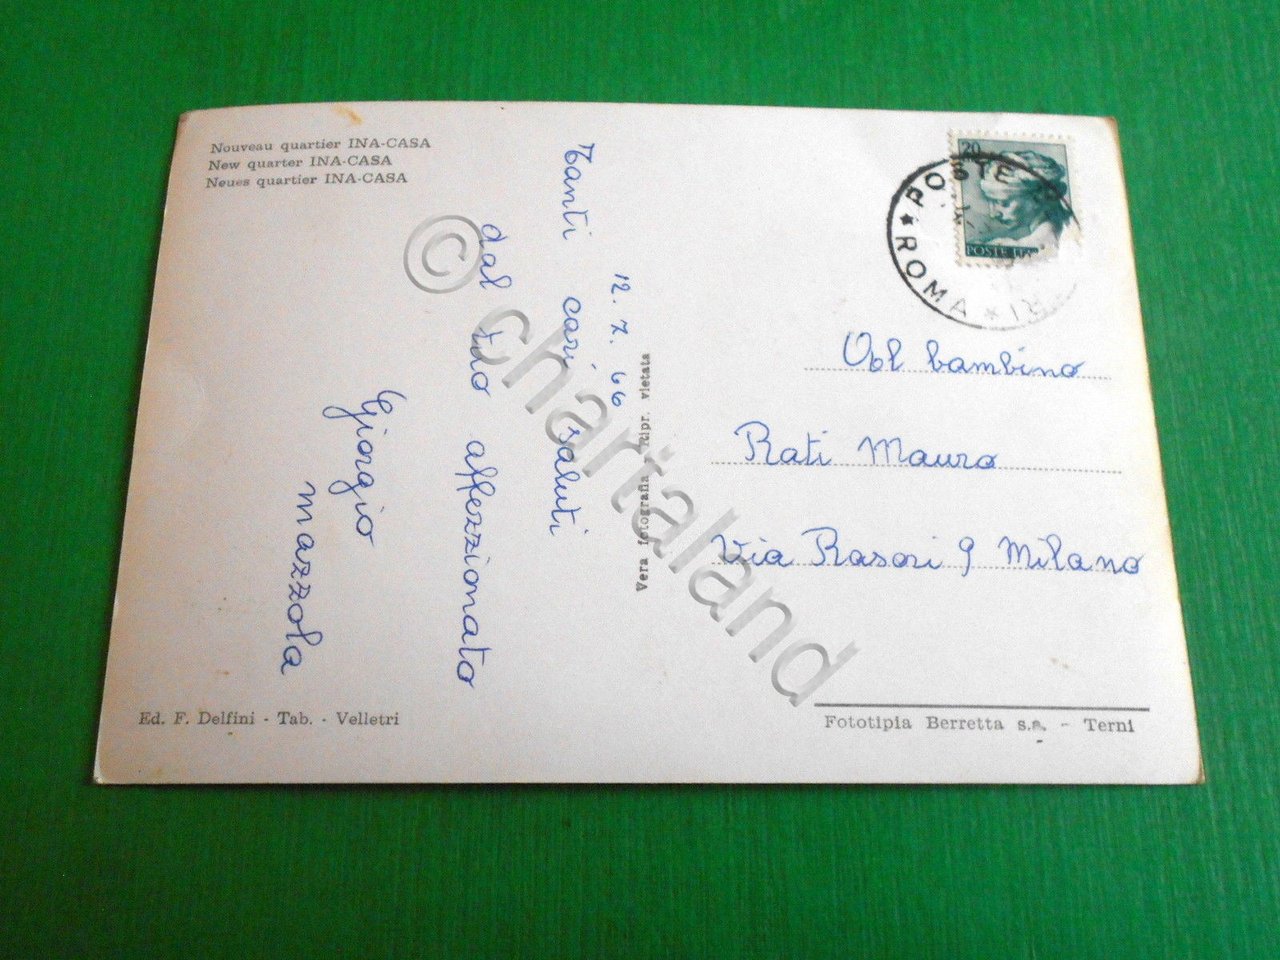 Nouveau quartier INA-CASA
New quarter INA-CASA
Neues quartier INA-CASA
12. 7. 66
Tanti cari saluti
dal tuo affezzionato
Giorgio
Mazzola
Vera fotografia - Ripr. vietata
20
POSTE
POSTE ROMA
Obl bambino
Rati Mauro
Via Rasori 9 Milano
Ed. F. Delfini - Tab. - Velletri
Fototipia Berretta s.a. - Terni
© chartaland